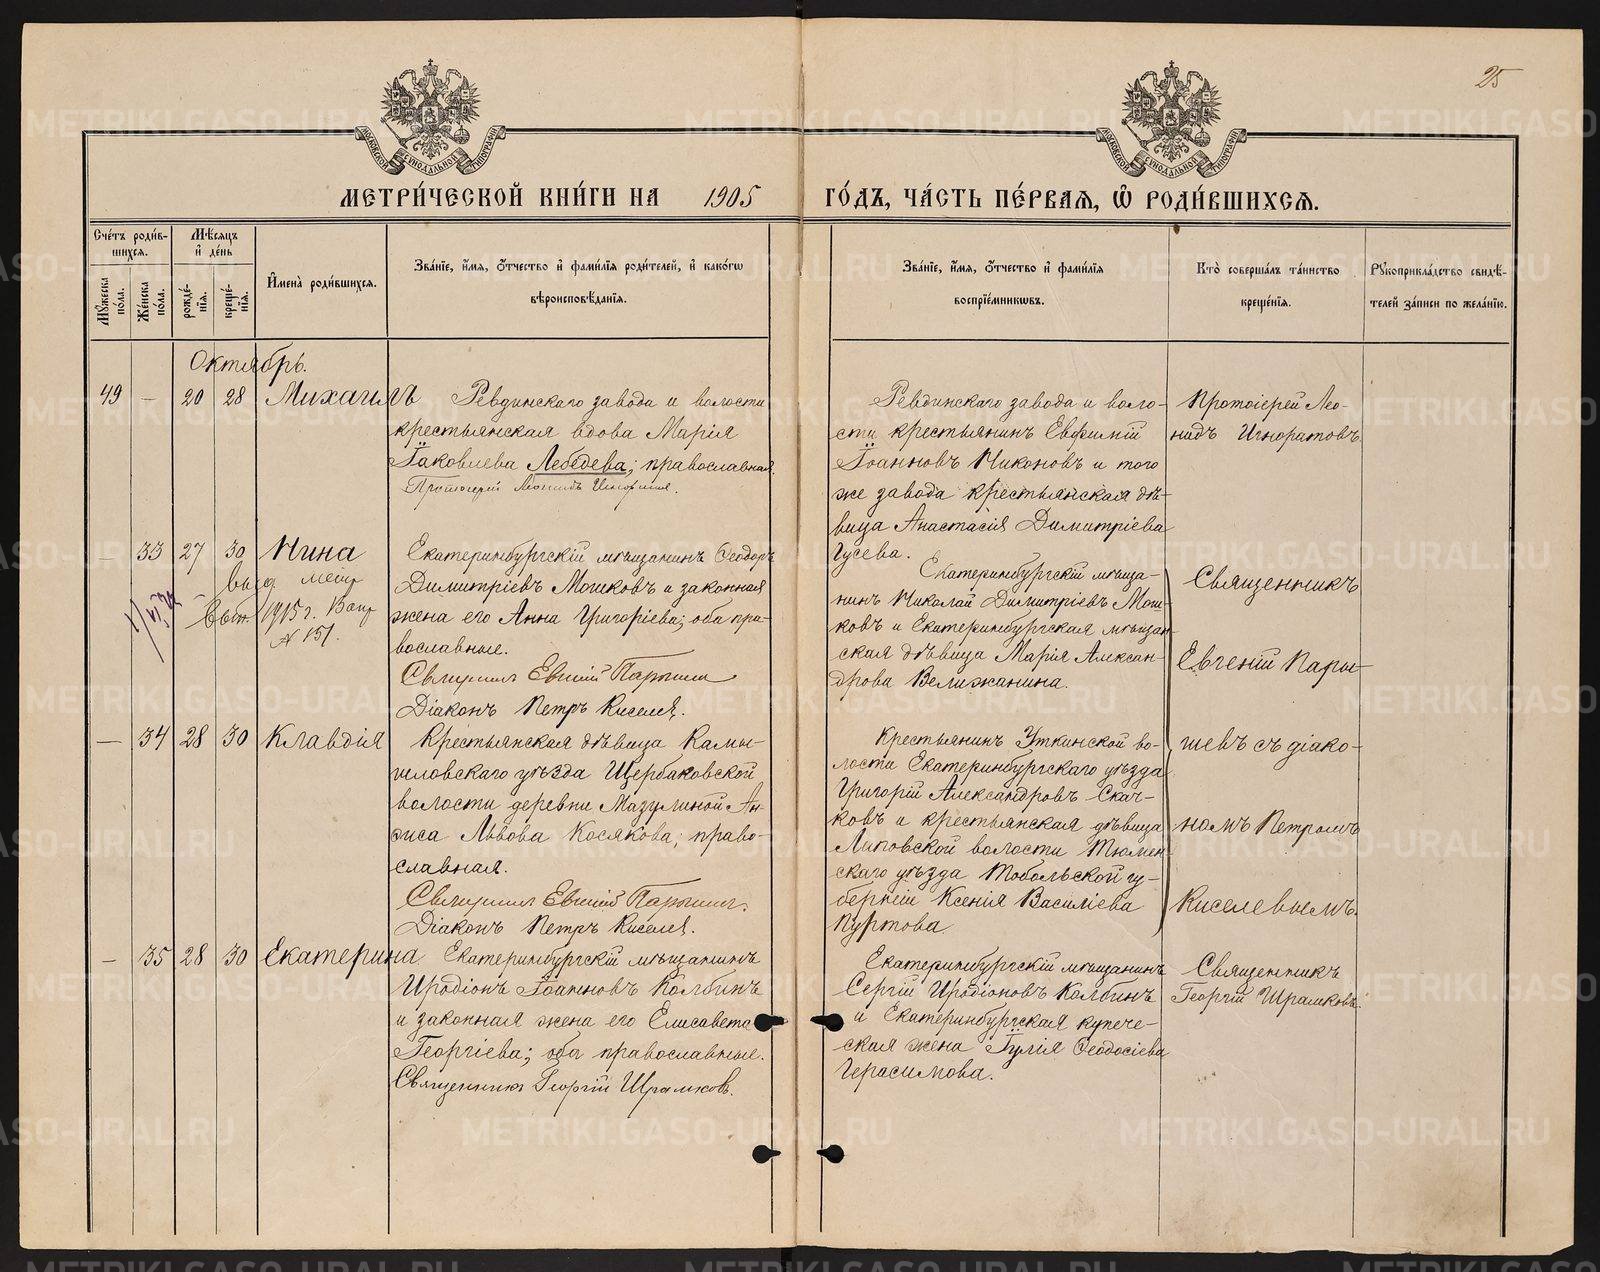 25
МЕТРИ́ЧЕСКОЙ КНИ́ГИ НА 1905 ГО́ДЪ, ЧА́СТЬ ПЕ́РВАѦ, Ѽ РОДИ́ВШИХСѦ.
Сче́тъ роди́в-
шихсѧ.
Мꙋ́жеска пола.
Же́нска пола.
Мѣ́сѧцъ
и҆ де́нь
рожде́-
нїѧ.
креще́-
нїѧ.
И҆мена̀ роди́вшихсѧ.
Зва́нїе, и҆́мѧ, ѻ҆́тчество и҆ фами́лїѧ роди́телей, и҆ како́гѡ
вѣроисповѣ́данїѧ.
Зва́нїе, и҆́мѧ, ѻ҆́тчество и҆ фами́лїѧ
воспрїе́мникѡвъ.
Кто̀ соверша́лъ та́инство
креще́нїѧ.
Рꙋкоприкла́дство свидѣ́-
телей за́писи по жела́нїю.
Октябрь.
49 — 20 28 Михаилъ
Ревдинскаго завода и волости
крестьянская вдова Марія
Іаковлева Лебедева; православная.
Протоіерей Леонидъ Игноратовъ.
Ревдинскаго завода и воло-
сти крестьянинъ Евфимій
Іоанновъ Никоновъ и того
же завода крестьянская дѣ-
вица Анастасія Димитріева
Гусева.
Протоіерей Лео-
нидъ Игноратовъ.
— 33 27 30 Нина
выд. метр
1915 г.
№ 151.
Екатеринбургскій мѣщанинъ Ѳеодоръ
Димитріевъ Мошковъ и законная
жена его Анна Григоріева; оба пра-
вославные.
Священникъ Евгеній Парышевъ
Діаконъ Петръ Киселев.
Екатеринбургскій мѣща-
нинъ Николай Димитріевъ Мош-
ковъ и Екатеринбургская мѣщан-
ская дѣвица Марія Алексан-
дрова Велижанина.
Священникъ
Евгеній Пары-
— 34 28 30 Клавдія
Крестьянская дѣвица Камы-
шловскаго уѣзда Щербаковской
волости деревни Мазулиной Ан-
фиса Львова Косякова; право-
славная.
Священникъ Евгеній Парышевъ.
Діаконъ Петръ Киселев.
Крестьянинъ Уткинской во-
лости Екатеринбургскаго уѣзда
Григорій Александровъ Скач-
ковъ и крестьянская дѣвица
Липовской волости Тюмен-
скаго уѣзда Тобольской гу-
берніи Ксенія Василіева
Пуртова
шевъ съ діако-
номъ Петромъ
Киселевымъ.
— 35 28 30 Екатерина
Екатеринбургскій мѣщанинъ
Иродіонъ Іоанновъ Колбинъ
и законная жена его Елисавета
Георгіева; оба православные.
Священникъ Георгій Шрамковъ.
Екатеринбургскій мѣщанинъ
Сергій Иродіоновъ Колбинъ
и Екатеринбургская купече-
ская жена Іулія Ѳеодосіева
Герасимова.
Священникъ
Георгій Шрамковъ.
METRIKI.GASO-URAL.RU